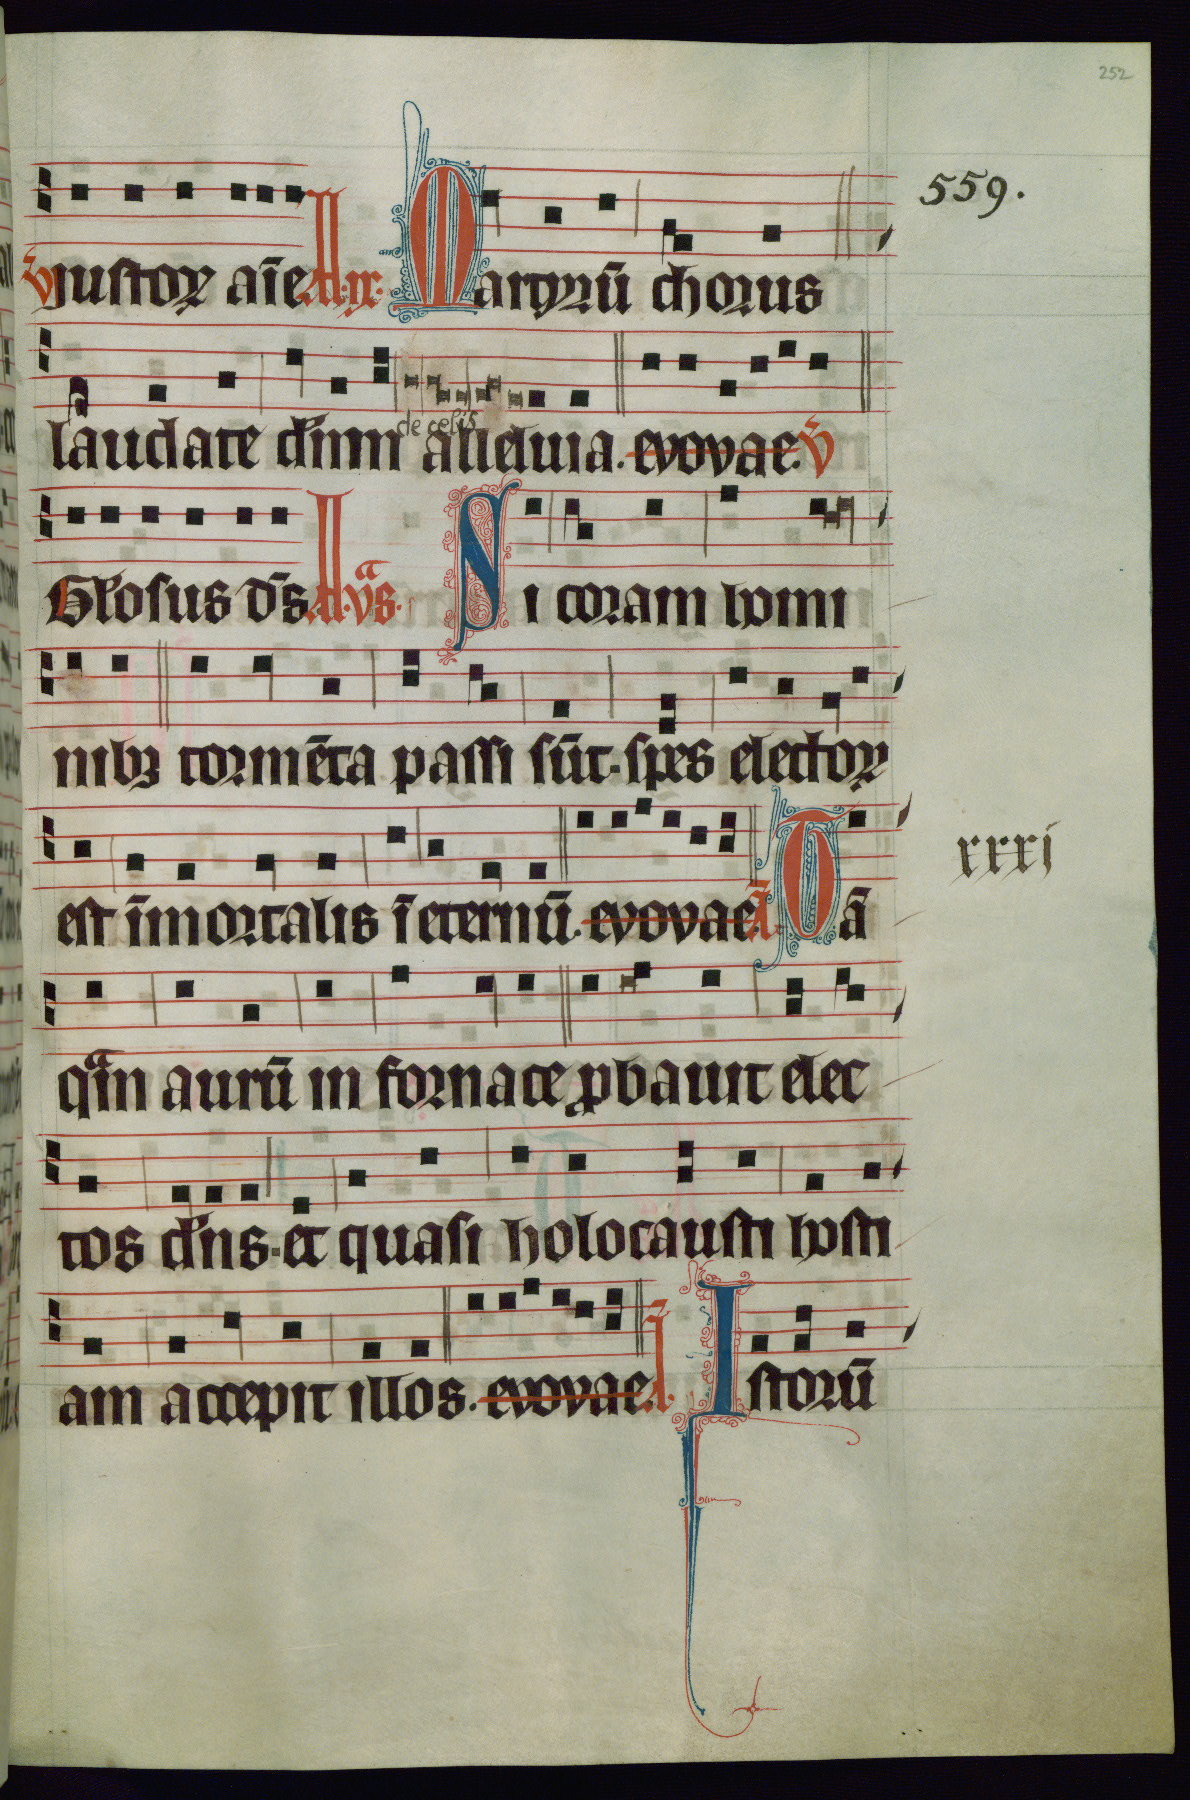 252
559.
v̄ Justoꝝ aīe A. ix. Martyrū chorus
laudate dn̄m de celis alleluia. evovae. v̄
Gl'osus d's A. vᵃs. Si coram homi
nibꝫ tormēta passi sūt. spes electoꝝ
est īmortalis ī eternū. evovae. ā Tā
xxxj
qᵃm aurū in fornace ꝓbauit elec
tos dn̄s. et quasi holocausti hosti
am accepit illos. evovae. ā Istorū